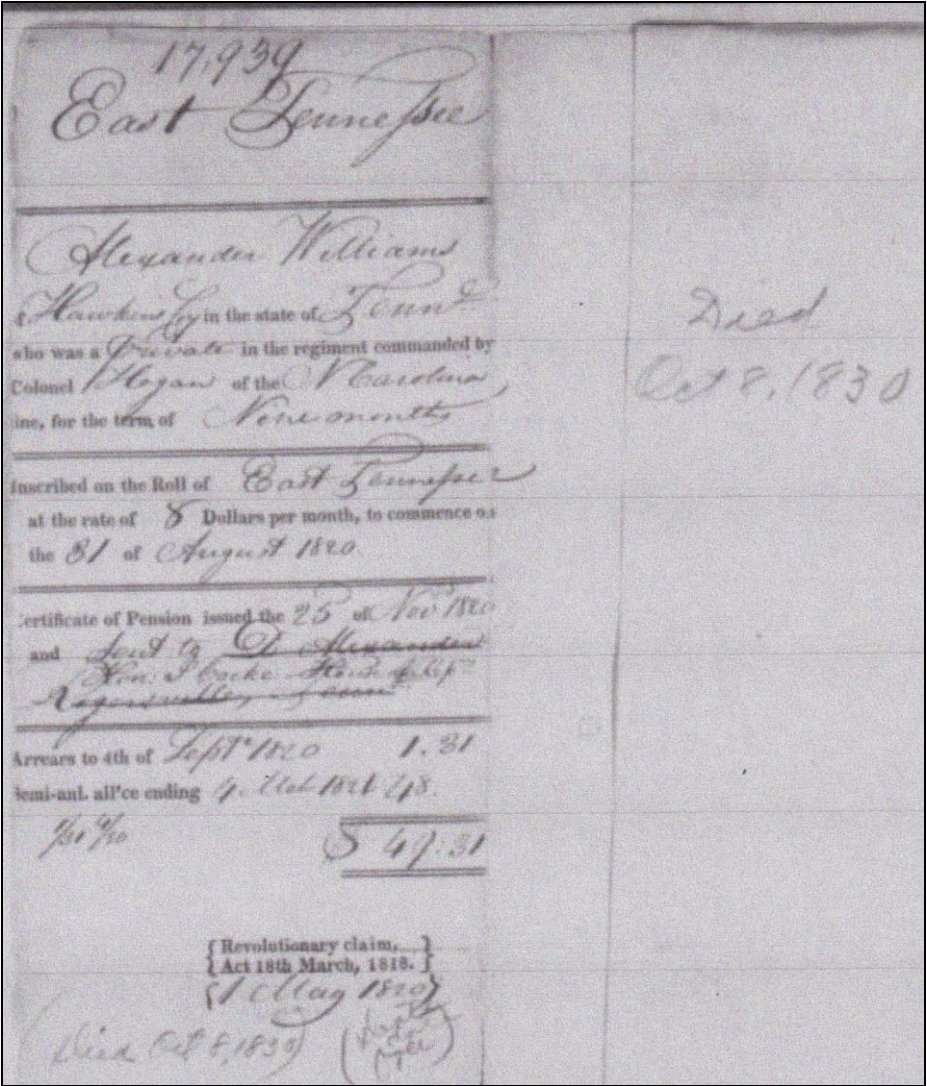 17,939
East Tennessee
Alexander Williams
Hawkins Coy in the state of Tenne
who was a Private in the regiment commanded by
Colonel Hogan of the N Carolina
ine, for the term of Nine months
Inscribed on the Roll of East Tennessee
at the rate of 8 Dollars per month, to commence on
the 31 of August 1820.
Certificate of Pension issued the 25 of Novr 1820
and sent to D. Alexander
Hon: J Cocke House of Rep
Rogersville, Tenne
Arrears to 4th of Septr 1820 1.31
Semi-anl. all'ce ending 4 Mch 1821 48.
$ 49.31
{ Revolutionary claim, }
{ Act 18th March, 1818. }
{ 1 May 1820 }
Died Oct 8, 1830
Died
Oct 8, 1830